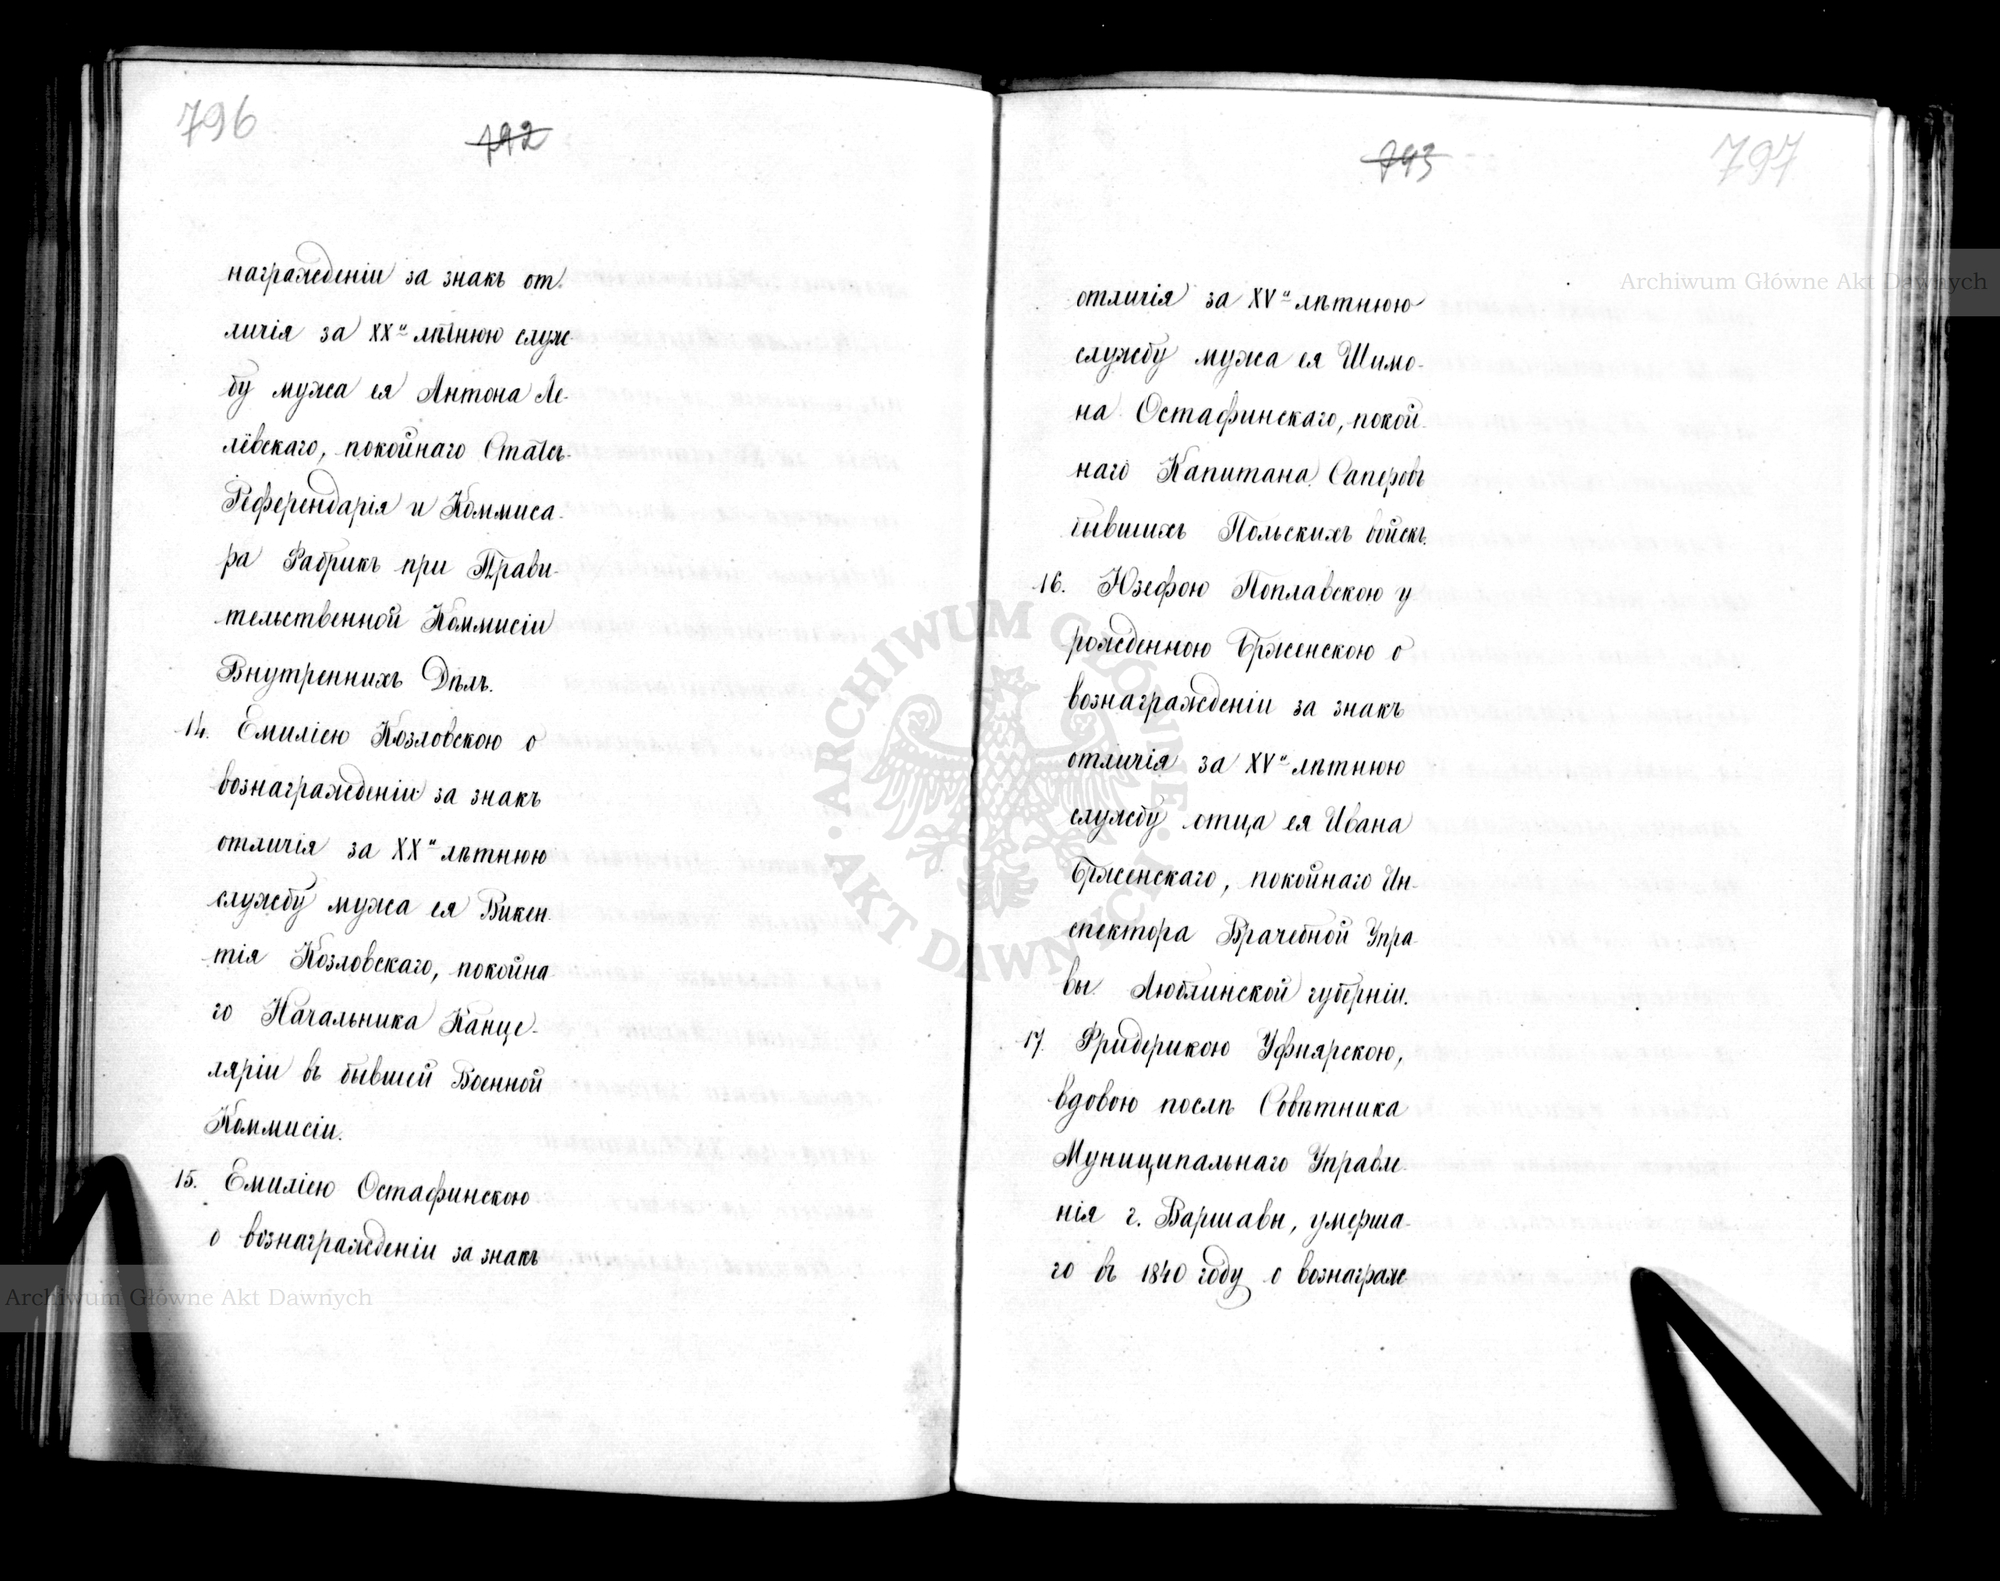 796
792
награжденіи за знакъ от
личія за XX-и лѣтнюю служ-
бу мужа ея Антона Ле-
лёвскаго, покойнаго Статсъ-
Референдарія и Коммиса-
ра Фабрикъ при Прави-
тельственной Коммисіи
Внутреннихъ Дѣлъ.
14. Емиліею Козловскою о
вознагражденіи за знакъ
отличія за XX-и лѣтнюю
службу мужа ея Викен-
тія Козловскаго, покойна
го Начальника Канце-
ляріи въ бывшей Военной
Коммисіи.
15. Емиліею Остафинскою
о вознагражденіи за знакъ
793
797
отличія за XV-и лѣтнюю
службу мужа ея Шимо-
на Остафинскаго, покой-
наго Капитана Саперовъ
бывшихъ Польскихъ войскъ.
16. Юзефою Поплавскою у
рожденною Брженскою о
вознагражденіи за знакъ
отличія за XV-и лѣтнюю
службу отца ея Ивана
Брженскаго, покойнаго Ин-
спектора Врачебной Упра-
вы Люблинской губерніи.
17. Фридерикою Уфнярскою,
вдовою послѣ Совѣтника
Муниципальнаго Управле-
нія г. Варшавы, умерша-
го въ 1840 году о вознаграж
Archiwum Główne Akt Dawnych
Archiwum Główne Akt Dawnych
ARCHIWUM GŁÓWNE AKT DAWNYCH